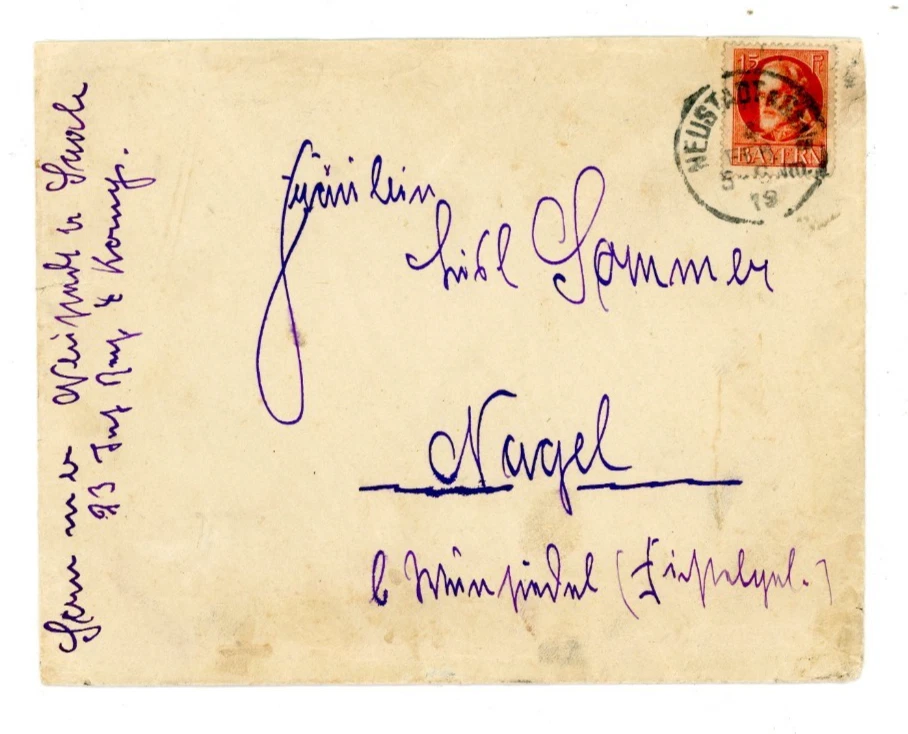 15 P
BAYERN
NEUSTADT
5
19
Fräulein
Liesl Sommer
Nagel
b Wunsiedel (Fichtelgeb.)
Sommer Neustadt a Saale
Inf Rag Komp.